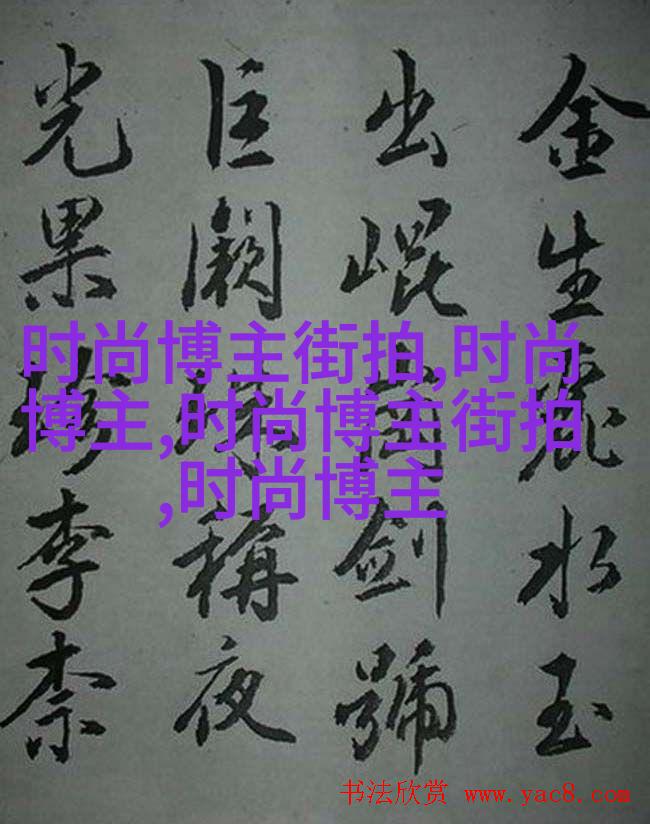 金生麗水玉
出崐岡劍號
巨闕珠稱夜
光果珍李柰
时尚博主街拍,时尚
博主,时尚博主街拍
,时尚博主
书法欣赏 www.yac8.com